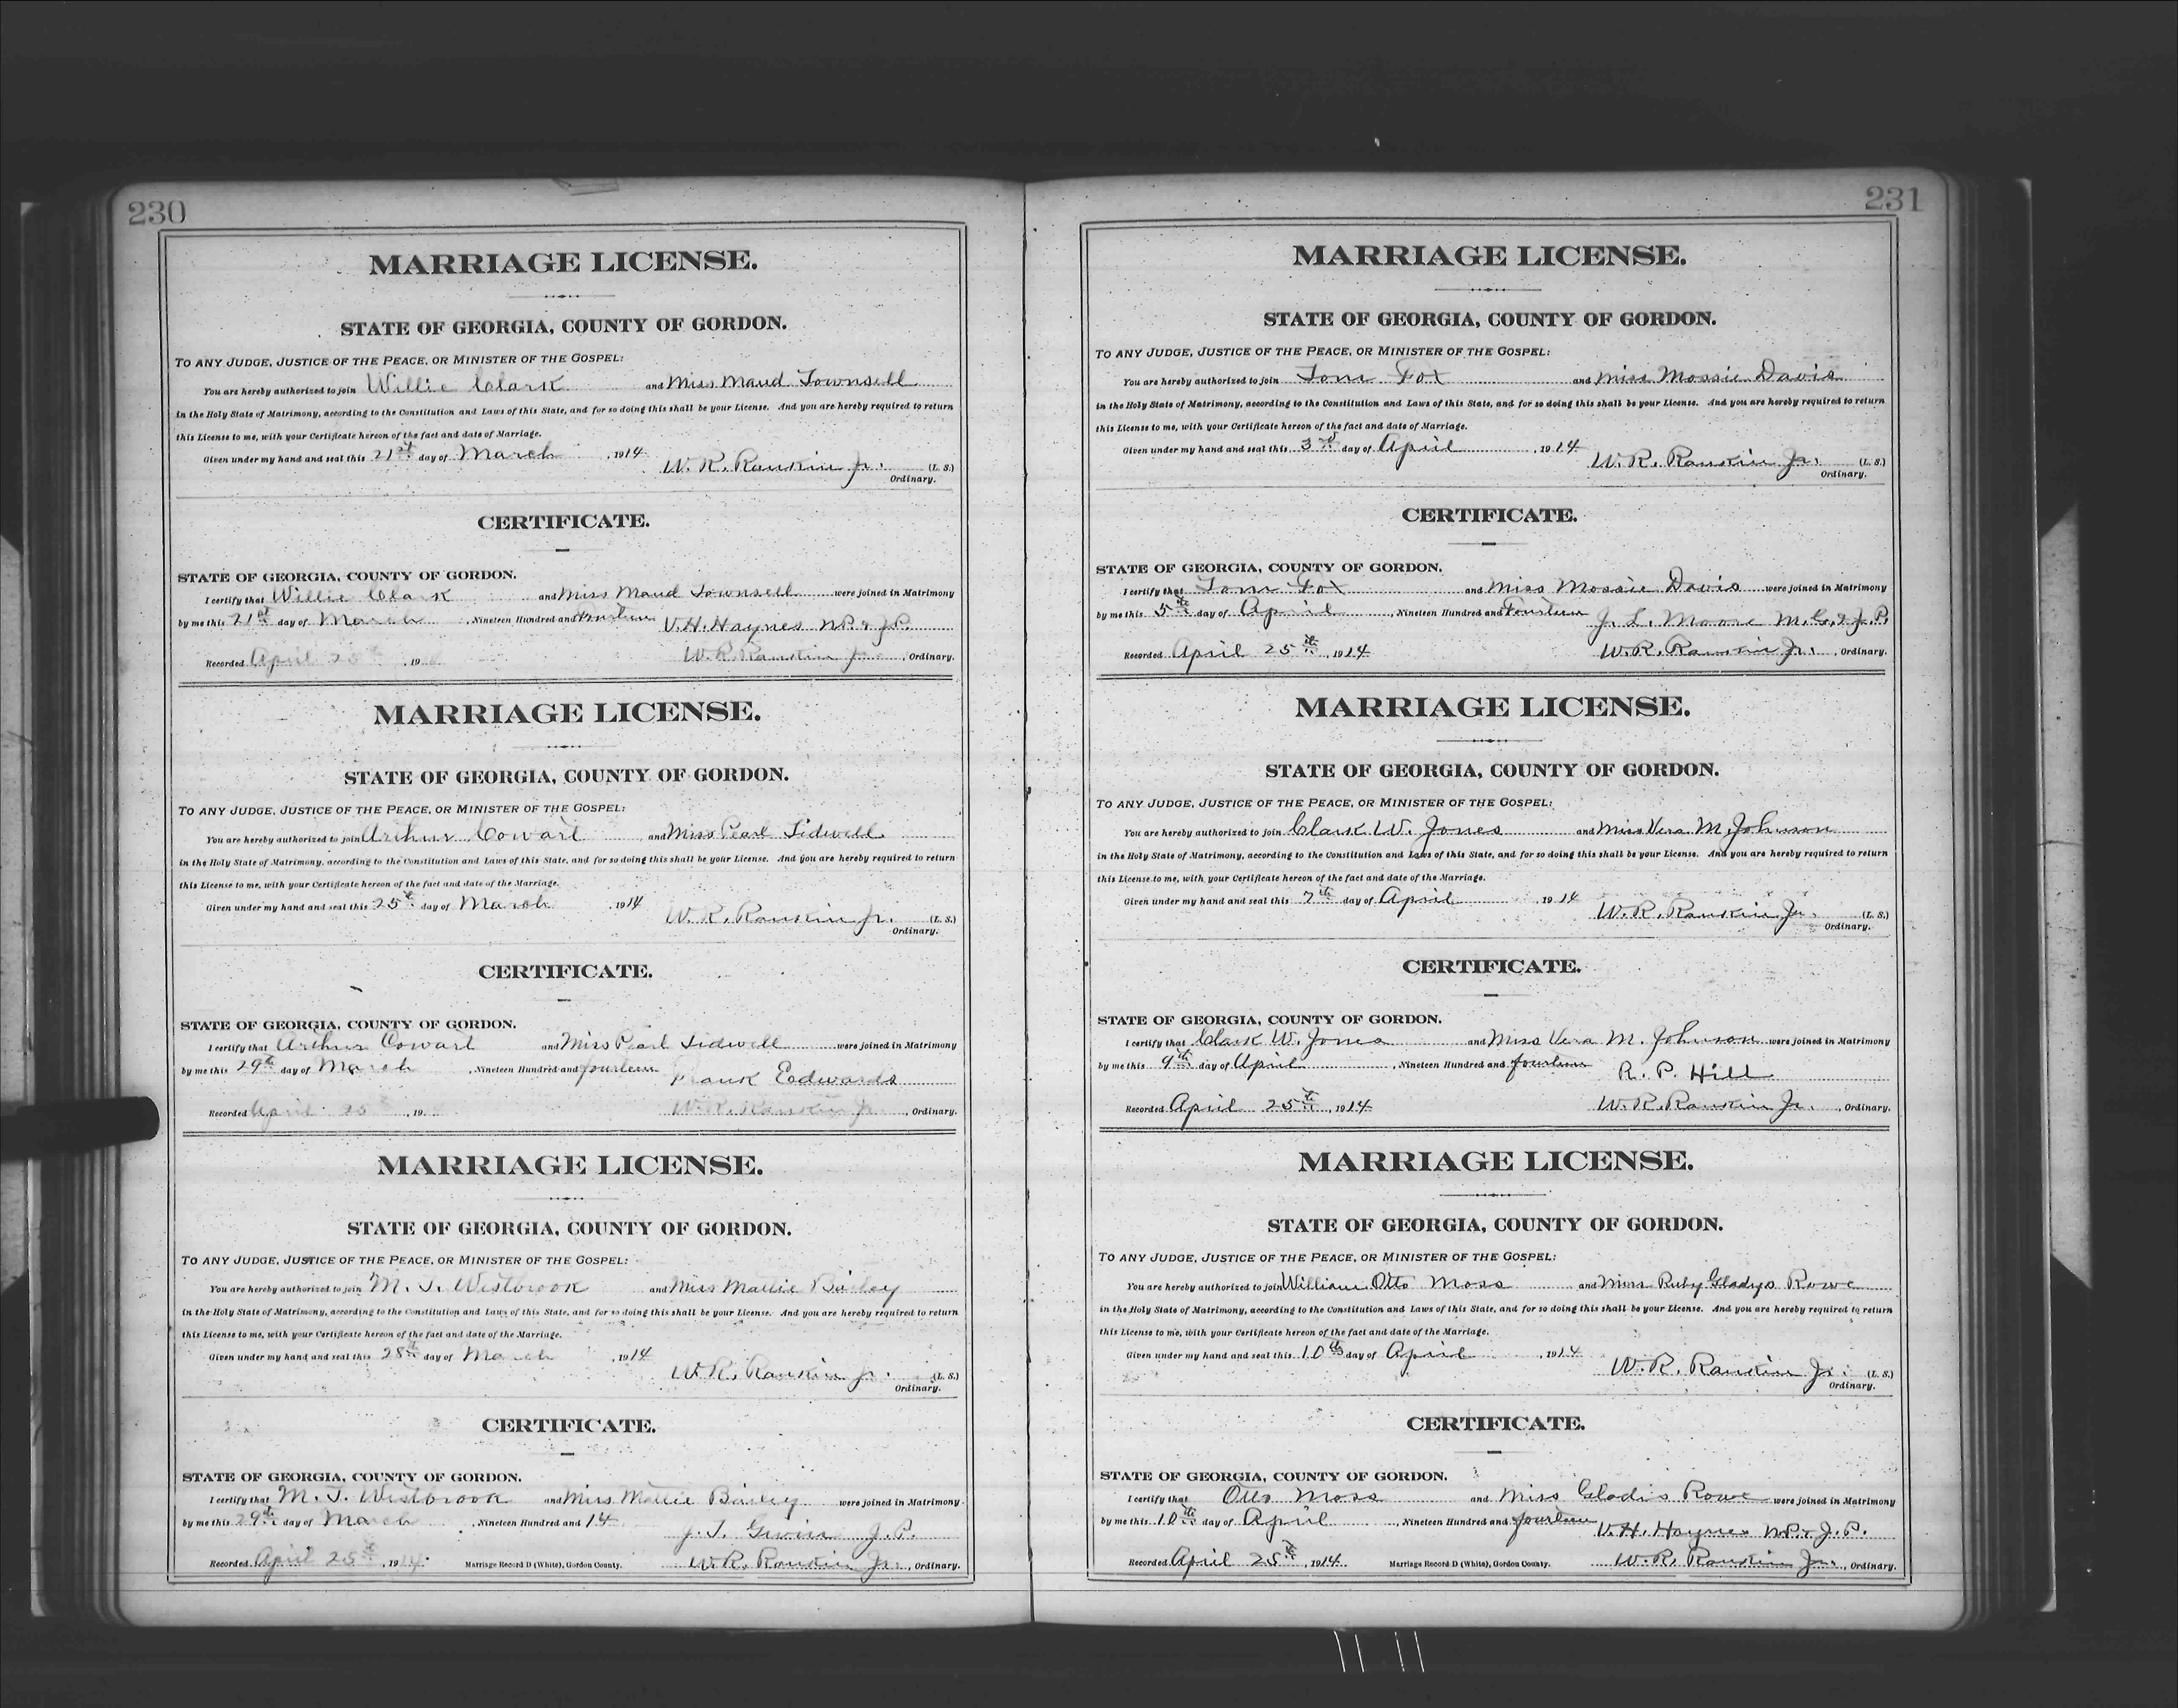 230
MARRIAGE LICENSE.
STATE OF GEORGIA, COUNTY OF GORDON.
TO ANY JUDGE, JUSTICE OF THE PEACE, OR MINISTER OF THE GOSPEL:
You are hereby authorized to join Willie Clark and Miss Maud Townsell
in the Holy State of Matrimony, according to the Constitution and Laws of this State, and for so doing this shall be your License. And you are hereby required to return
this License to me, with your Certificate hereon of the fact and date of Marriage.
Given under my hand and seal this 21st day of March, 1914
W. R. Rankin Jr. (L. S.)
Ordinary.
CERTIFICATE.
STATE OF GEORGIA, COUNTY OF GORDON.
I certify that Willie Clark and Miss Maud Townsell were joined in Matrimony
by me this 21st day of March, Nineteen Hundred and Fourteen V. H. Haynes N.P. & J.P.
Recorded April 25th, 19 W. R. Rankin Jr., Ordinary.
MARRIAGE LICENSE.
STATE OF GEORGIA, COUNTY OF GORDON.
TO ANY JUDGE, JUSTICE OF THE PEACE, OR MINISTER OF THE GOSPEL:
You are hereby authorized to join Arthur Cowart and Miss Pearl Tidwell
in the Holy State of Matrimony, according to the Constitution and Laws of this State, and for so doing this shall be your License. And you are hereby required to return
this License to me, with your Certificate hereon of the fact and date of the Marriage.
Given under my hand and seal this 25th day of March, 1914
W. R. Rankin Jr. (L. S.)
Ordinary.
CERTIFICATE.
STATE OF GEORGIA, COUNTY OF GORDON.
I certify that Arthur Cowart and Miss Pearl Tidwell were joined in Matrimony
by me this 29th day of March, Nineteen Hundred and fourteen Frank Edwards
Recorded April 25, 19 W. R. Rankin Jr., Ordinary.
MARRIAGE LICENSE.
STATE OF GEORGIA, COUNTY OF GORDON.
TO ANY JUDGE, JUSTICE OF THE PEACE, OR MINISTER OF THE GOSPEL:
You are hereby authorized to join M. J. Westbrook and Miss Mattie Bailey
in the Holy State of Matrimony, according to the Constitution and Laws of this State, and for so doing this shall be your License. And you are hereby required to return
this License to me, with your Certificate hereon of the fact and date of the Marriage.
Given under my hand and seal this 28th day of March, 1914
W. R. Rankin Jr. (L. S.)
Ordinary.
CERTIFICATE.
STATE OF GEORGIA, COUNTY OF GORDON.
I certify that M. J. Westbrook and Miss Mattie Bailey were joined in Matrimony
by me this 29th day of March, Nineteen Hundred and 14 J. P.
Recorded April 25th, 1914. Marriage Record D (White), Gordon County. W. R. Rankin Jr., Ordinary.
231
MARRIAGE LICENSE.
STATE OF GEORGIA, COUNTY OF GORDON.
TO ANY JUDGE, JUSTICE OF THE PEACE, OR MINISTER OF THE GOSPEL:
You are hereby authorized to join Tom Fox and Miss Mossie Davis
in the Holy State of Matrimony, according to the Constitution and Laws of this State, and for so doing this shall be your License. And you are hereby required to return
this License to me, with your Certificate hereon of the fact and date of Marriage.
Given under my hand and seal this 3rd day of April, 1914
W. R. Rankin Jr. (L. S.)
Ordinary.
CERTIFICATE.
STATE OF GEORGIA, COUNTY OF GORDON.
I certify that Tom Fox and Miss Mossie Davis were joined in Matrimony
by me this 5th day of April, Nineteen Hundred and Fourteen J. L. Moore M.G. & J.P.
Recorded April 25th, 1914 W. R. Rankin Jr., Ordinary.
MARRIAGE LICENSE.
STATE OF GEORGIA, COUNTY OF GORDON.
TO ANY JUDGE, JUSTICE OF THE PEACE, OR MINISTER OF THE GOSPEL:
You are hereby authorized to join Clark W. Jones and Miss Vera M. Johnson
in the Holy State of Matrimony, according to the Constitution and Laws of this State, and for so doing this shall be your License. And you are hereby required to return
this License to me, with your Certificate hereon of the fact and date of the Marriage.
Given under my hand and seal this 7th day of April, 1914
W. R. Rankin Jr. (L. S.)
Ordinary.
CERTIFICATE.
STATE OF GEORGIA, COUNTY OF GORDON.
I certify that Clark W. Jones and Miss Vera M. Johnson were joined in Matrimony
by me this 9th day of April, Nineteen Hundred and fourteen R. P. Hill
Recorded April 25th, 1914 W. R. Rankin Jr., Ordinary.
MARRIAGE LICENSE.
STATE OF GEORGIA, COUNTY OF GORDON.
TO ANY JUDGE, JUSTICE OF THE PEACE, OR MINISTER OF THE GOSPEL:
You are hereby authorized to join William Otto Moss and Miss Ruby Gladys Rowe
in the Holy State of Matrimony, according to the Constitution and Laws of this State, and for so doing this shall be your License. And you are hereby required to return
this License to me, with your Certificate hereon of the fact and date of the Marriage.
Given under my hand and seal this 10th day of April, 1914
W. R. Rankin Jr. (L. S.)
Ordinary.
CERTIFICATE.
STATE OF GEORGIA, COUNTY OF GORDON.
I certify that Otto Moss and Miss Gladis Rowe were joined in Matrimony
by me this 10th day of April, Nineteen Hundred and fourteen V. H. Haynes N.P. & J.P.
Recorded April 25th, 1914. Marriage Record D (White), Gordon County. W. R. Rankin Jr., Ordinary.